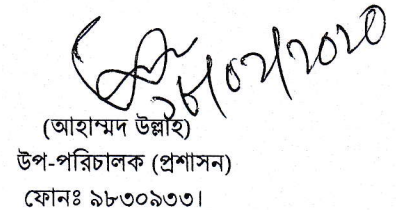 ১৮/০২/২০২০
(আহাম্মদ উল্লাহ)
উপ-পরিচালক (প্রশাসন)
ফোনঃ ৯৮৩০৯৩৩।